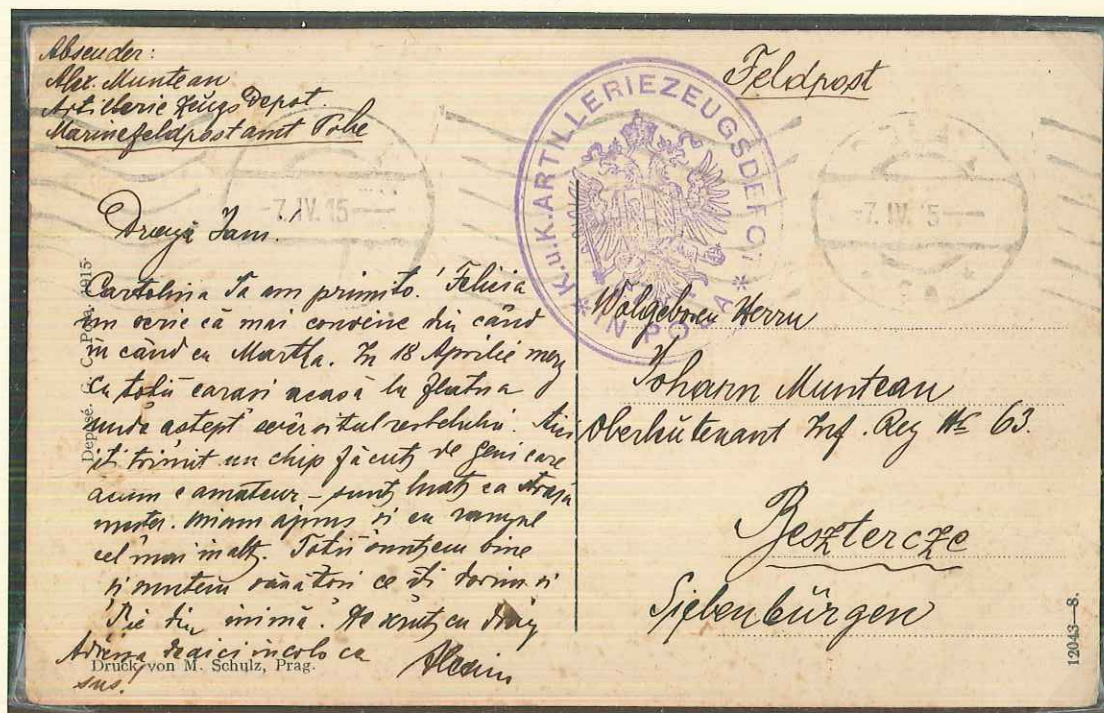 Absender:
Alex. Muntean
Artillerie Zeugs Depot.
Marinefeldpostamt Pola
Feldpost
K.u.K. ARTILLERIEZEUGSDEPOT
* IN POLA *
-7.IV.15-
-7.IV.15-
Dragă Jani!
Cartolina Ta am primito! Felicia
îm scrie că mai convine din când
în când cu Martha. In 18 Aprilie merg
cu toții earasi acasă la
unde astept sversitul resbelului. Aici
iți trimit un chip făcut de Geni care
acum e amateur – sunt luat ca
miam ajuns si eu rangul
cel mai inalt. Totii suntem bine
si suntem sănătosi ce iți dorim si
Ție din inimă. Te sărut cu drag
Adresa deaici incolo ca
sus!
Wolgeboren Herrn
Johann Muntean
Oberleutenant Inf. Reg No 63.
Besztercze
Siebenbürgen
Deposé. G. C. Pola 1915
Druck von M. Schulz, Prag.
12043—8.